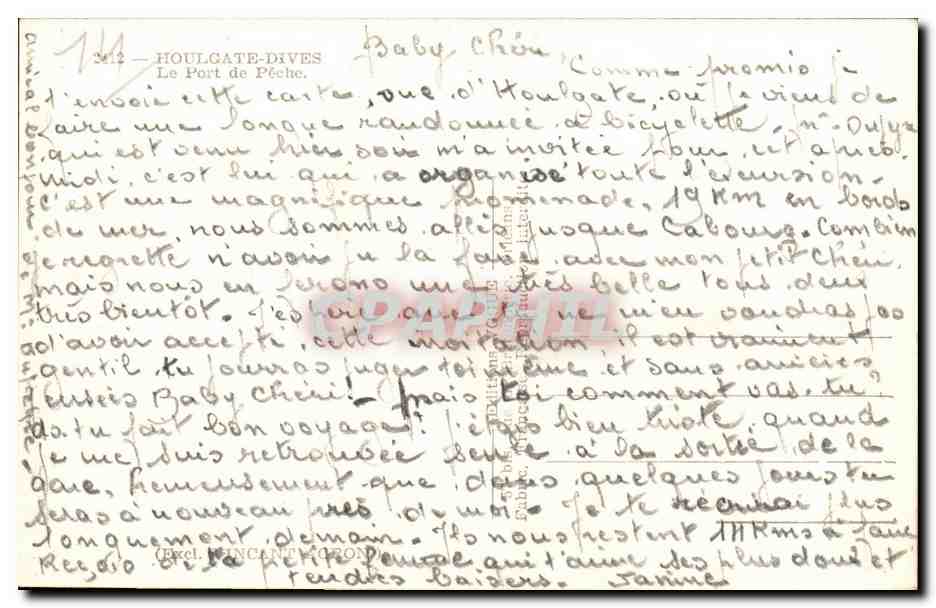 2412 — HOULGATE-DIVES
Le Port de Pêche.
Baby Chéri,
Comme promis je
t'envoie cette carte, vue d'Houlgate, où je viens de
faire une longue randonnée à bicyclette, Mr
qui est venu hier soir m'a invitée pour cet après
midi, c'est lui qui a organisé toute l'excursion.
C'est une magnifique promenade, 19 Km en bords
de mer, nous sommes allés jusque Cabourg. Combien
je regrette n'avoir pu la faire avec mon petit Chéri,
mais nous en ferons une très belle tous deux
très bientôt. J'espère que tu ne m'en voudras pas
d'avoir accepté cette invitation, il est vraiment
gentil tu pourras juger toi même et sans arrières
pensées Baby Chéri! - Mais toi comment vas-tu?
as-tu fait bon voyage? j'étais bien triste, quand
je me suis retrouvée seule à la sortie de la
gare, heureusement que dans quelques jours tu
seras à nouveau près de moi. Je te récrirai plus
longuement demain. Ils nous restent 11 Kms à faire
Reçois de ta petite femme qui t'aime ses plus doux et
tendres baisers. Janine
(Excl. VINCANT-VIGERON)
Editions
CPAPHIL